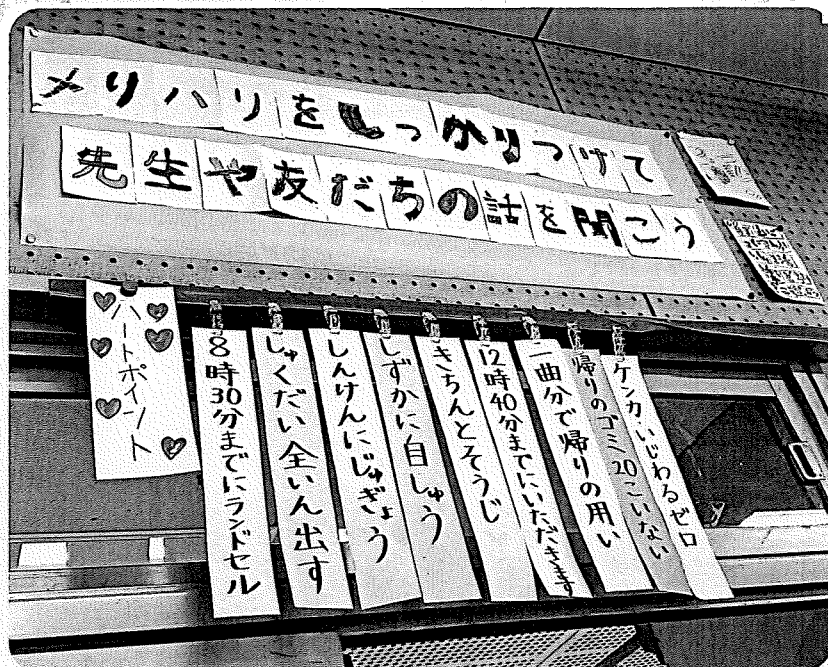 メリハリをしっかりつけて
先生や友だちの話を聞こう
ハートポイント
8時30分までにランドセル
しゅくだい全いん出す
しんけんにじゅぎょう
しずかに自しゅう
きちんとそうじ
12時40分までにいただきます
二曲分で帰りの用い
帰りのゴミ20こいない
ケンカ・いじわるゼロ